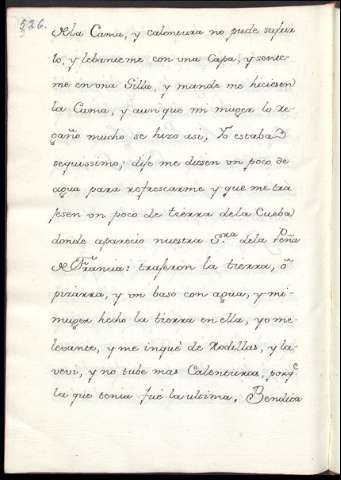 526.
de la Cama, y calentura no pude sufrir
lo, y lebanteme con una Capa, y sente
me en una Silla, y mande me hiciesen
la Cama, y aunque mi muger lo re
gaño mucho se hizo asi, Yo estaba
sequissimo; dije me diesen un poco de
agua para refrescarme y que me tra
jesen un poco de tierra dela Cueba
donde aparecio nuestra S.ra dela Peña
de Francia: trajeron la tierra, ó
pizarra, y un baso con agua, y mi
muger hecho la tierra en ella, yo me
levante, y me inqué de Rodillas, y la
veví, y no tube mas Calenturas, porq.e
la que tenia fué la ultima, Bendita